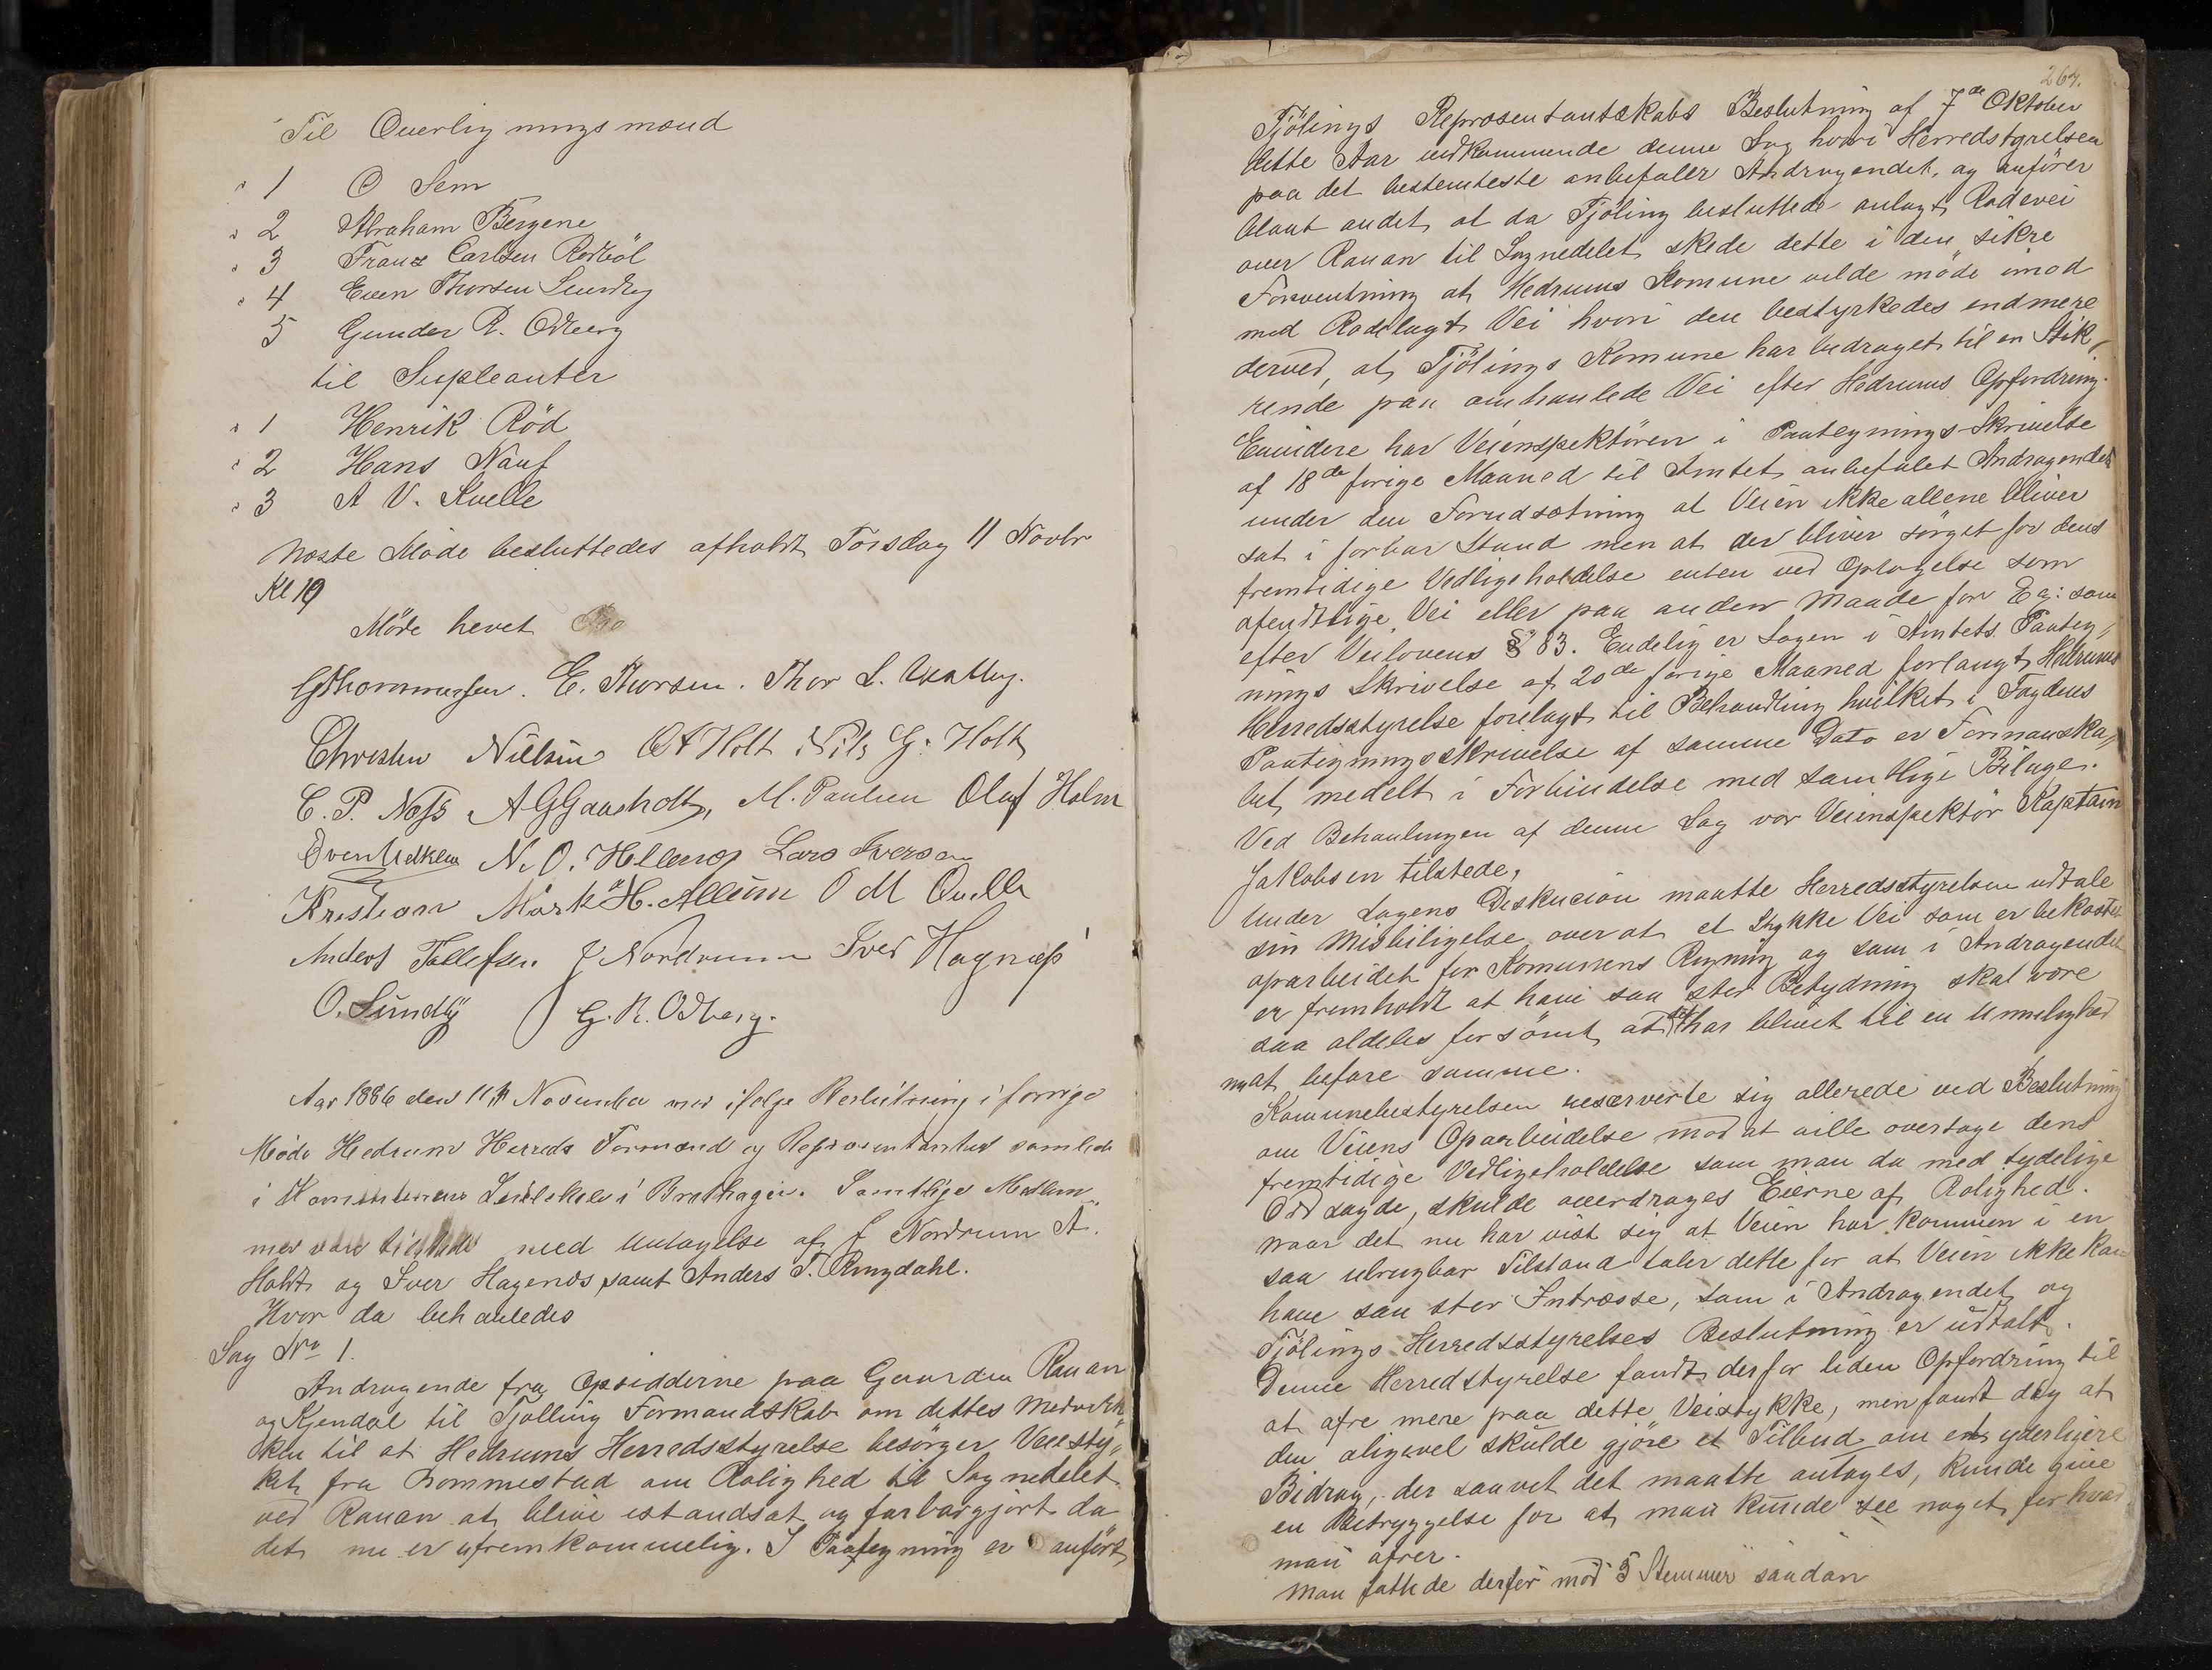 Til Overligningsmænd
1 O Sem
2 Abraham Bergene
3 Franz Carlsen Rödböl
4 Even Thorsen Sundby
5 Gunder R. Odberg
til Supleanter
1 Henrik Röd
2 Hans Nauf
3 A V. Kvelle
Næste Möde besluttedes afholdt Torsdag 11 Novbr
Kl 10
Möde hevet
GThommesen. E. Thorsen. Thor L.
Christen Nilsen O A Holt Nils G. Holt
C. P. Næss A G Gaasholt, M. Paulsen Oluf Holm
N. O. Hellenop Lars Iversen
Kristian Mörk H. Allum O M Qvelle
Anders Tollefsen J Nordrum Iver Hagnæs
O. Sundby G. R. Odberg.
Aar 1886 den 11te November var ifølge Beslutning i forrige
Møde Hedrum Herreds Formænd og Repræsentanter samlede
i Kommunens Lokale i Brathagen. Samtlige Medlem„
mer vare tilstede med Untagelse af J Nordrum A.
Holdt og Iver Hagenæs samt Anders T. Ringdahl.
Hvor da behanledes
Sag No 1.
Andragende fra Opsidderne paa Gaardene Rauan
og Kjendal til Tjølling Formandskab om dettes Medvirk„
ken til at Hedrums Herredsstyrelse besörger Veisty„
ket fra Bommestad om Rolighed til Sognedelet
ved Rauan at blive istandsat og farbargjort da
det nu er ufremkommelig. I Paategning er anfört
264.
Tjölings Repræsentantskabs Beslutning af 7de Oktober
dette Aar vedkommende denne Sag hvori Herredstyrelsen
paa det bestemteste anbefaler Andragendet, og anförer
blant andet, at da Tjöling besluttede anlagt Rodevei
over Rauan til Sognedelet skede dette i den sikre
Forventning at Hedrums Komune vilde möde imod
med Rodelagt Vei hvori den bestyrkedes endmere
derved, at Tjölings Komune har bidraget til en Stik„
rende paa omhanlede Vei efter Hedrums Opfordring.
Envidere har Veiinspektören i Paategnings-Skrivelse
af 18de forige Maaned til Amtet anbefalet Andragendet
under den Forudsætning at Veien ikke allene bliver
sat i forbar Stand men at der bliver sörget for dens
fremtidige Vedligeholdelse enten ved Optagelse som
ofendtlige Vei eller paa anden Maade for Ex: som
efter Veilovens § 83. Endelig er Sagen i Amtets Paateg„
nings Skrivelse af 20de forige Maaned forlangt Hedrums
Herredsstyrelse forelagt til Behandling hvilket i Fogdens
Paategningsskrivelse af samme Dato er Formanska„
bet medelt i Forbindelse med samtlige Bilage.
Ved Behanlingen af denne Sag var Veiinspektör Kaptain
Jakobsen tilstede,
Under Sagens Diskucion maatte Herredsstyrelsen udtale
sin Misbiligelse over at et Stykke Vei som er bekostet
oparbeidet for Komunens Regning og som i Andragendet
er fremholdt at have saa stor Betydning skal være
saa aldeles forsömt, at det har blevet til en Umulighed
at befare samme.
Komunebestyrelsen reserverte sig allerede ved Beslutning
om Veiens Oparbeidelse mod at ville overtage dens
fremtidige Vedligeholdelse som man da med tydelige
Ord sagde, skulde overdrages Eierne af Rolighed.
Naar det nu har vist sig at Veien har kommen i en
saa ubrugbar Tilstand taler dette for at Veien ikke kan
have saa stor Intræsse, som i Andragendet og
Tjölings Herredsstyrelses Beslutning er udtalt.
Denne Herredstyrelse fandt derfor liden Opfordring til
at ofre mere paa dette Veistykke, men fandt dog at
den aligevel skulde gjöre et Tilbud om et yderligere
Bidrag, der saavet det maatte antages, kunde give
en Betryggelse for at man kunde see noget for hvad
man ofrer.
Man fattede derfor mod 5 Stemmer saadan